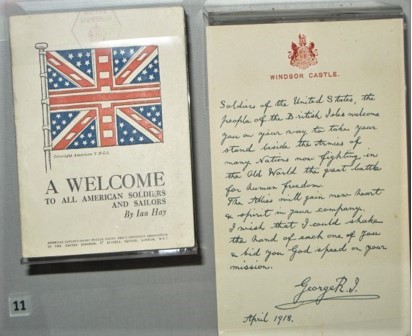 Copyright American Y.M.C.A.
A WELCOME
TO ALL AMERICAN SOLDIERS
AND SAILORS
By Ian Hay
11
WINDSOR CASTLE.
Soldiers of the United States, the
people of the British Isles welcome
you on your way to take your
stand beside the Armies of
many Nations now fighting in
the Old World the great battle
for human freedom.
The Allies will gain new heart
& spirit in your company.
I wish that I could shake
the hand of each one of you
& bid you God speed on your
mission.
George R.I.
April 1918.